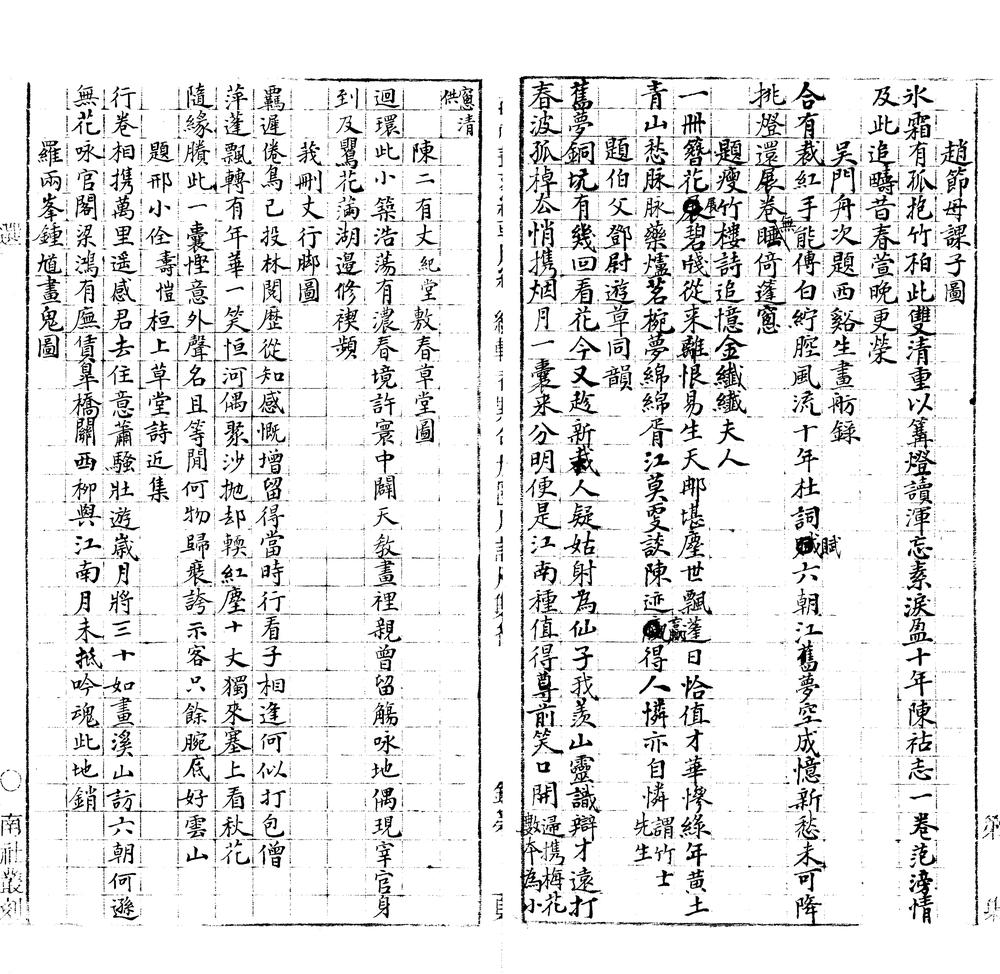 趙節母課子圖
冰霜有孤抱竹柏此雙清重以篝燈讀渾忘素淚盈十年陳祜志一卷范滂情
及此追疇昔春萱晚更榮
吳門舟次題西谿生畫舫錄
合有裁紅手能傳白紵腔風流十年杜詞賦六朝江舊夢空成憶新愁未可降
挑燈還展卷無睡倚蓬窗
題瘦竹樓詩追憶金纖纖夫人
一冊簪花展碧牋從來離恨易生天郍堪塵世飄蓬日恰值才華慘綠年黄土
青山愁脉脉藥爐茗椀夢綿綿胥江莫更談陳迹贏得人憐亦自憐謂竹士先生
題伯父鄧尉遊草同韻
舊夢銅坑有幾回看花今又趁新栽人疑姑射為仙子我羨山靈識辯才遠打
春波孤棹去悄携烟月一囊來分明便是江南種值得尊前笑口開歸携梅花數本為小
窗清供
陳二有丈紀堂敷春草堂圖
迴環此小築浩蕩有濃春境許寰中闢天教畫裡親曾留觴咏地偶現宰官身
到及鶯花滿湖邊修禊頻
莪刪丈行脚圖
羈遲倦鳥已投林閱歷從知感慨增留得當時行看子相逢何似打包僧
萍蓬飄轉有年華一笑恒河偶聚沙抛却輭紅塵十丈獨來塞上看秋花
隨緣賸此一囊慳意外聲名且等閒何物歸裝誇示客只餘腕底好雲山
題邢小佺壽愷桓上草堂詩近集
行卷相携萬里遥感君去住意蕭騷壯遊歲月將三十如畫溪山訪六朝何遜
無花咏官閣梁鴻有廡賃臯橋關西柳與江南月未抵吟魂此地銷
羅兩峯鍾馗畫鬼圖
選
〇
南社叢刻